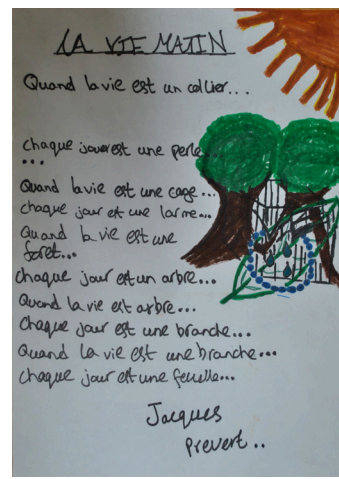 LA VIE MATIN
Quand la vie est un collier...
Chaque jour est une perle...
...
Quand la vie est une cage...
chaque jour est une larme...
Quand la vie est une
foret...
chaque jour est un arbre...
Quand la vie est arbre...
Chaque jour est une branche...
Quand la vie est une branche...
chaque jour est une feuelle...
Jacques
Prevert..